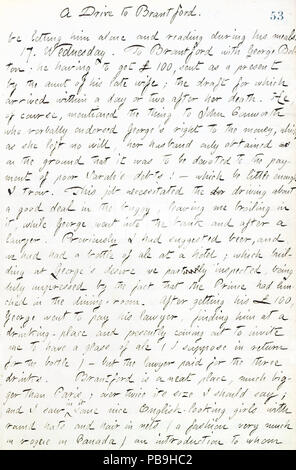 A Drive to Brantford.
53
be letting him alone and reading during his meals.
17. Wednesday. To Brantford with George Bol-
ton; he having to get £100, sent as a present
by the aunt of his late wife; the draft for which
arrived within a day or two after her death. He
of course, mentioned the thing to John Conworth
who verbally endorsed George's right to the money,
as she left no will her husband only obtained
on the ground that it was to be devoted to the pay-
ment of poor Sarah's debts: — which be little enough
I trow. This job necessitated the driving about
a good deal in the buggy, leaving me broiling in
it, while George went into the bank and after a
lawyer. Previously I had suggested beer, and
we had had a bottle of ale at a hotel; which buil-
ding at George's desire we partly inspected, being
duly impressed by the fact that the Prince had lun-
ched in the dining-room. After getting his £100,
George went to pay his lawyer, finding him at a
drinking-place and presently coming out to invite
me to have a glass of ale (I suppose in return
for the bottle) — but the lawyer paid for the three
drinks. Brantford is a neat place, much big-
ger than Paris; over twice its size I should say;
and I saw some nice English-looking girls with
round hats and hair in nets (a fashion very much
in vogue in Canada) an introduction to whom
alamy
PB9HC2